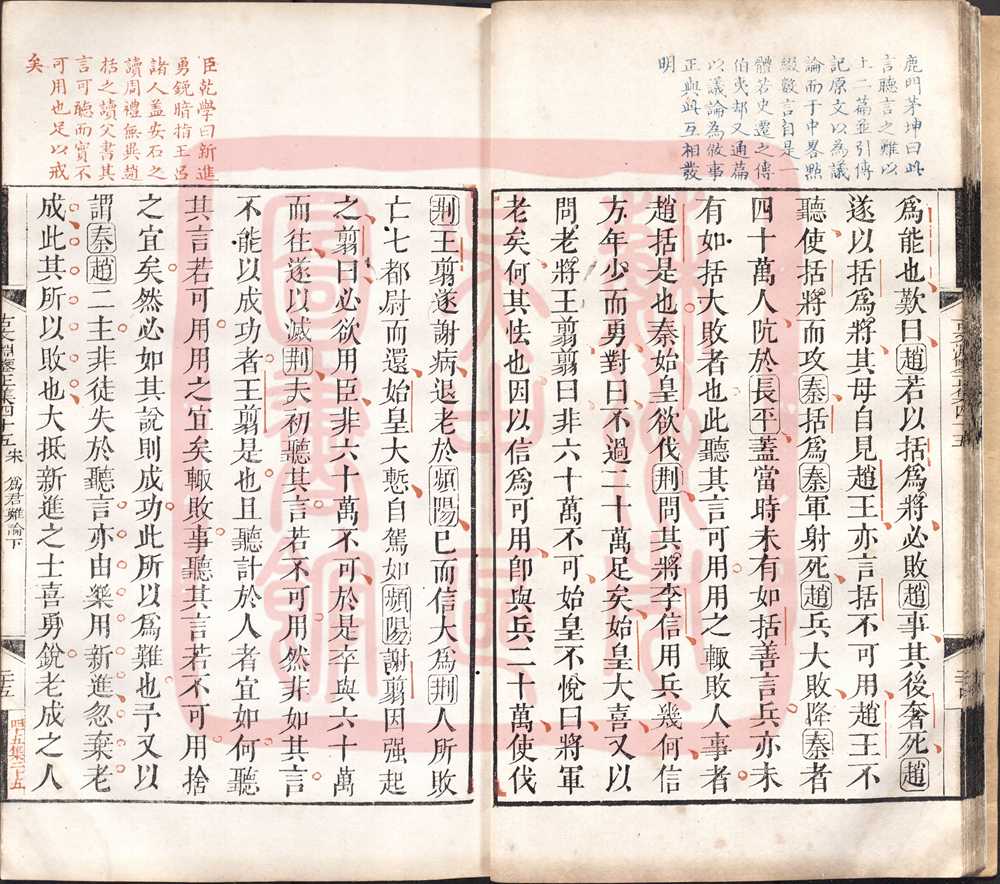 鹿門茅坤曰此
言聽言之難以
上二篇並引傳
記原文以為議
論而于中畧㸃
綴數言自是一
體若史遷之傳
伯夷却又通篇
以議論為敘事
正與此互相發
明
爲能也歎曰趙若以括爲將必敗趙事其後奢死趙
遂以括爲將其母自見趙王亦言括不可用趙王不
聽使括將而攻秦括爲秦軍射死趙兵大敗降秦者
四十萬人阬於長平蓋當時未有如括善言兵亦未
有如括大敗者也此聽其言可用用之輙敗人事者
趙括是也秦始皇欲伐荆問其將李信用兵幾何信
方年少而勇對曰不過二十萬足矣始皇大喜又以
問老將王翦翦曰非六十萬不可始皇不悅曰將軍
老矣何其怯也因以信爲可用卽與兵二十萬使伐
臣乾學曰新進
勇銳暗指王吕
諸人盖安石之
讀周禮無異趙
括之讀父書其
言可聽而實不
可用也足以戒
矣
荆王翦遂謝病退老於頻陽已而信大爲荆人所敗
亡七都尉而還始皇大慙自駕如頻陽謝翦因强起
之翦曰必欲用臣非六十萬不可於是卒與六十萬
而往遂以滅荆夫初聽其言若不可用然非如其言
不能以成功者王翦是也且聽計於人者宜如何聽
其言若可用用之宜矣輙敗事聽其言若不可用捨
之宜矣然必如其說則成功此所以爲難也予又以
謂秦趙二主非徒失於聽言亦由樂用新進忽棄老
成此其所以敗也大抵新進之士喜勇銳老成之人
古文淵鑒正集四十五 宋 爲君難論下
二十五
四十五集二十五